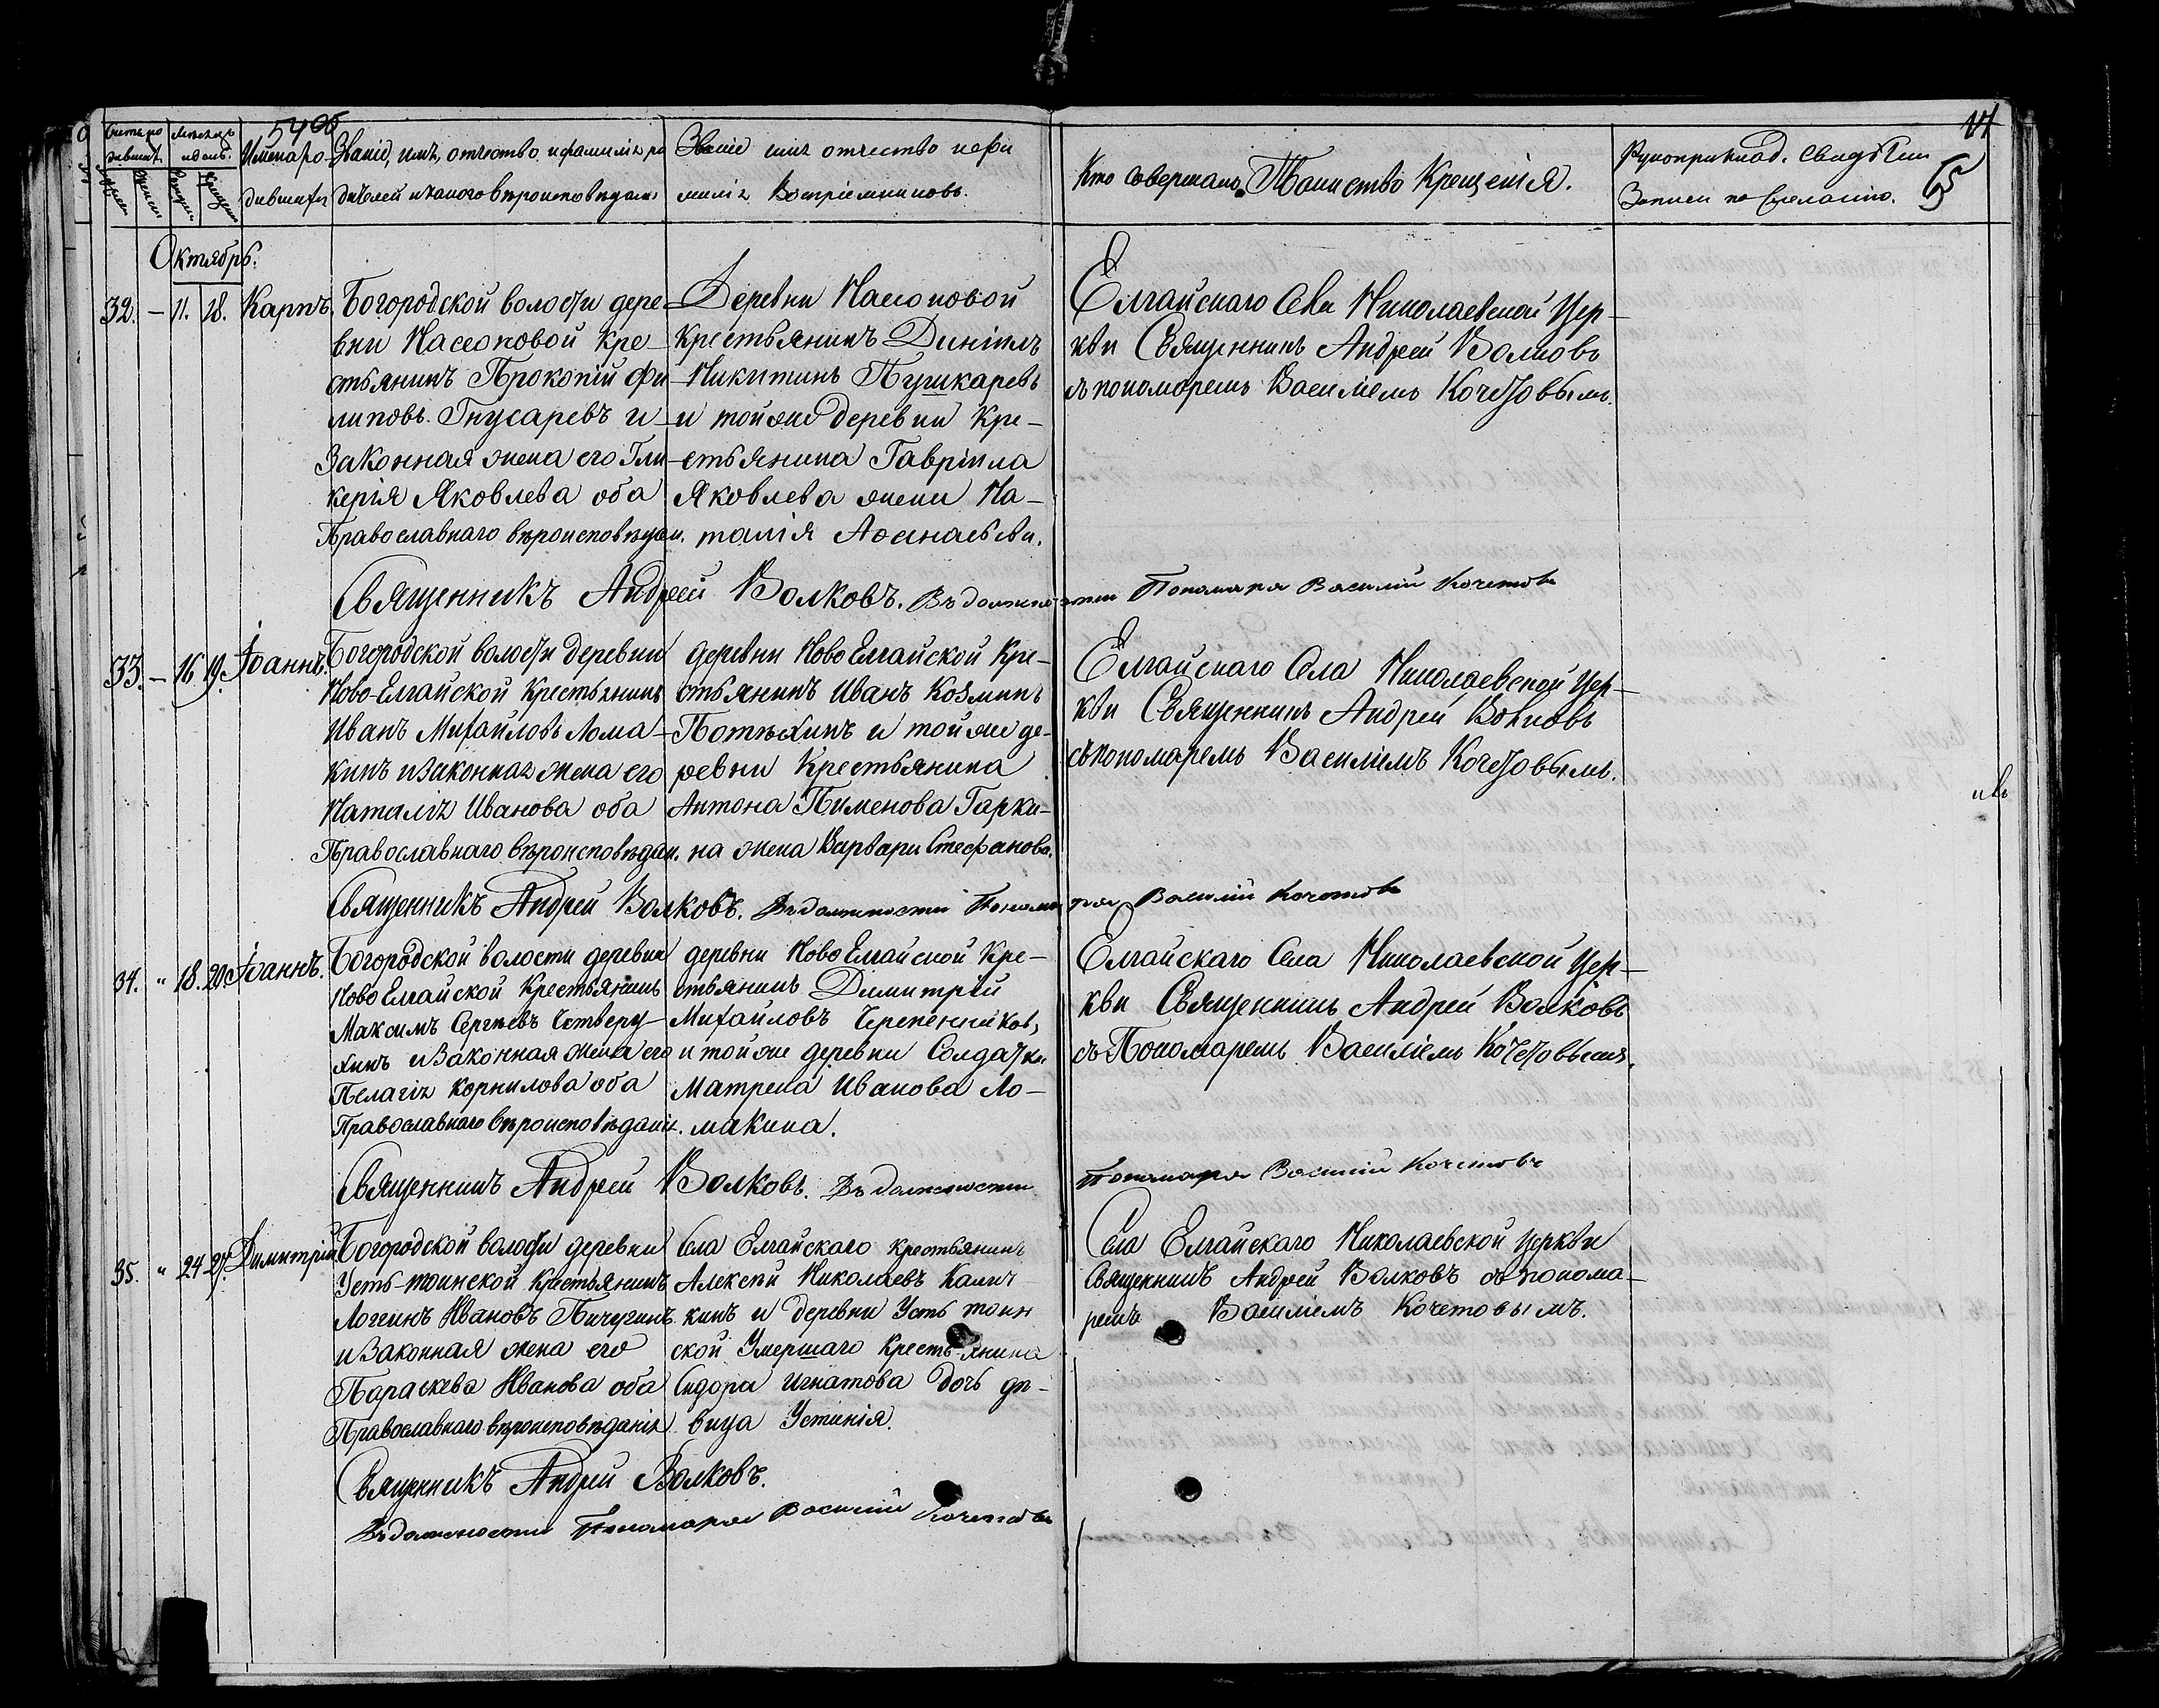 5406
Счетъ ро
дивших.
Мѣсяцъ
и день.
Имена ро
дившихся
Званіе, имя, отчество и фамилія ро
дителей и какого вѣроисповѣданія
Званіе имя отчество и фа
милія Воспріемниковъ.
Кто совершалъ Таинство Крещенія.
Рукоприклад. свидѣтел
Записи по желанію.
65
Октябрь.
32. – 11. 18. Карпъ.
Богородской волости дере-
вни Насоновой Кре-
стьянинъ Прокопій Фи-
липовъ Гнусаревъ и
Законная жена его Гли-
керія Яковлева оба
Православнаго вѣроисповѣдан.
Деревни Насоновой
Крестьянинъ Даніилъ
Никитинъ Пушкаревъ
и тойже деревни Кре-
стьянина Гавріила
Яковлева жена На-
талія Аѳанасьева.
Елгайскаго Села Николаевской Цер-
кви Священникъ Андрей Волковъ
съ пономаремъ Василіемъ Кочетовымъ.
Священникъ Андрей Волковъ. Въ должности Пономаря Василій Кочетовъ
33. – 16 19. Іоаннъ.
Богородской волости деревни
Ново-Елгайской Крестьянинъ
Иванъ Михайловъ Лома-
кинъ и Законная жена его
Наталія Иванова оба
Православнаго вѣроисповѣдан.
деревни Ново Елгайской Кре-
стьянинъ Иванъ Козминъ
Потѣхинъ и тойже де-
ревни Крестьянина
Антона Пименова Гарки-
на жена Варвара Стефанова.
Елгайскаго Села Николаевской Цер-
кви Священникъ Андрей Волковъ
съ пономаремъ Василіемъ Кочетовымъ.
Священникъ Андрей Волковъ. Въ должности Пономаря Василій Кочетовъ
34. " 18. 20. Іоаннъ.
Богородской волости деревни
Ново Елгайской Крестьянинъ
Максимъ Сергѣевъ Четверу-
хинъ и Законная жена его
Пелагія Корнилова оба
Православнаго вѣроисповѣданія.
деревни Ново Елгайской Кре-
стьянинъ Димитрій
Михайловъ Черепенниковъ,
и тойже деревни Солдатка
Матрена Иванова Ло-
макина.
Елгайскаго Села Николаевской Цер-
кви Священникъ Андрей Волковъ
съ Пономаремъ Василіемъ Кочетовымъ.
Священникъ Андрей Волковъ. Въ должности Пономаря Василій Кочетовъ
35. " 24 27. Димитрій
Богородской волости деревни
Усть-тоинской Крестьянинъ
Логгинъ Ивановъ Пичугинъ
и Законная жена его
Параскева Иванова оба
Православнаго вѣроисповѣданія
Села Елгайскаго крестьянинъ
Алексѣй Николаевъ Калин
кинъ и деревни Усть тоин
ской Умершаго Крестьянина
Сидора Игнатова дочь дѣ-
вица Устинія.
Села Елгайскаго Николаевской церкви
Священникъ Андрей Волковъ съ понома-
ремъ Василіемъ Кочетовымъ.
Священникъ Андрей Волковъ.
Въ должности Пономаря Василій Кочетовъ